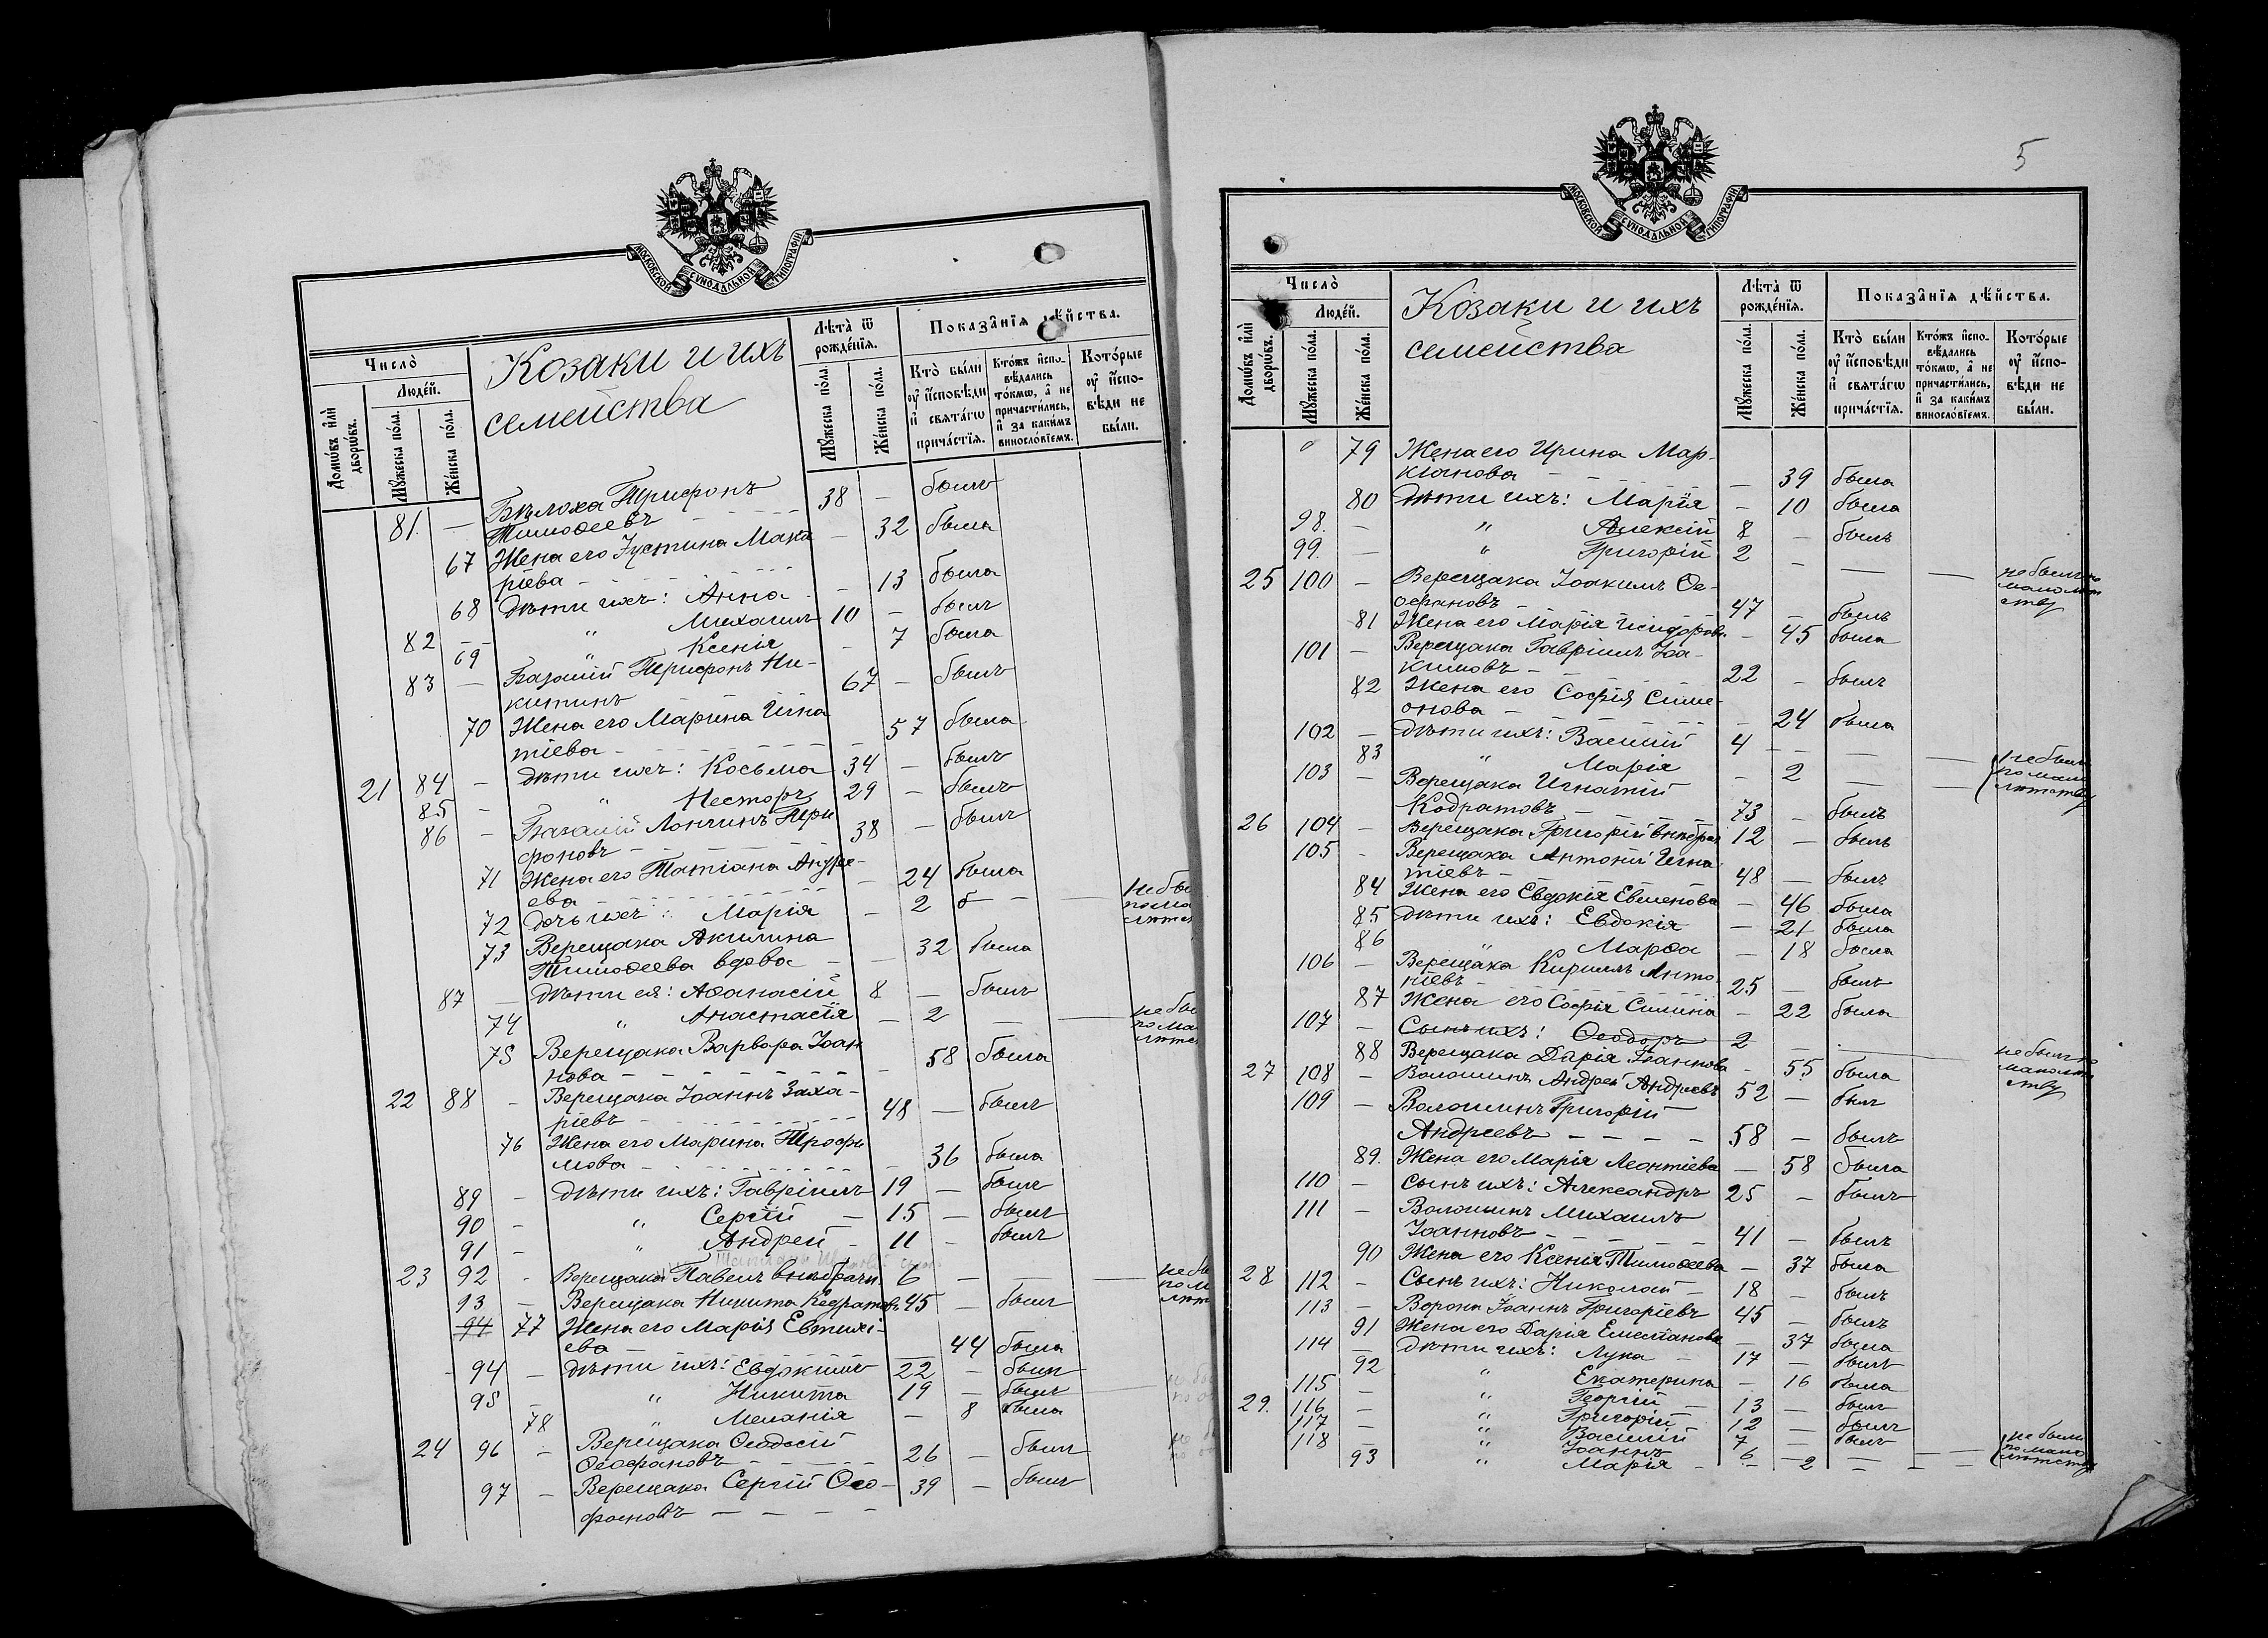 МОСКОВСКОЙ СѴНОДАЛЬНОЙ ТИПОГРАФІИ
Число̀
Людéй.
Домѡ́въ и҆лѝ дворѡ́въ.
Мꙋ́жеска по́ла.
Же́нска по́ла.
Козаки и ихъ
семейства
Лѣта̀ ѿ рожде́нїѧ.
Мꙋ́жеска по́ла.
Же́нска по́ла.
Показа̑нїѧ дѣ́йства.
Кто̀ были ᲂу҆ и҆сповѣди и҆ свѧта́гѡ прича́стїѧ.
Кто́жъ и҆сповѣ́дались то́кмѡ, а҆ не причасти́лись, и҆ за каки́мъ винослѡ́вїемъ.
Кото́рые ᲂу҆ и҆сповѣди не бы́ли.
81. — Бѣлоха Трифонъ
Тимоѳеевъ 38 — былъ
67 Жена его Іустина Мака
ріева — 32 была
68 Дѣти ихъ: Анна — 13 была
82 — " Михаилъ 10 — былъ
69 " Ксенія — 7 была
83 — Базилій Трифонъ Ни-
китинъ 67 — былъ
70 Жена его Марина Игна
тіева — 57 была
21 84 — Дѣти ихъ: Косьма 34 — былъ
85 — " Несторъ 29 — былъ
86 — Логинъ Три
фоновъ 38 — былъ
71 Жена его Татіана Андре-
ева — 24 была
72 Дочь ихъ: Марія — 2 — —
73 Верещака Акилина
Тимоѳеева вдова — 32 была
87 — Дѣти ея: Аѳанасій 8 — былъ
74 " Анастасія — 2 — —
75 Верещака Варвара Іоан
нова — 58 была
22 88 — Верещака Іоаннъ Заха-
ріевъ 48 — былъ
76 Жена его Марина Трофи
мова — 36 была
89 — Дѣти ихъ: Гавріилъ 19 — былъ
90 — " Сергій — 15 — былъ
91 — " Андрей — 11 — былъ
23 92 — Верещака Павелъ внѣбрачн. 6 — —
93 — Верещака Никита Кодратовъ 45 — былъ
94 77 Жена его Марія Евтихі-
ева — 44 была
94 — Дѣти ихъ: Евдокимъ 22 — былъ
95 — " Никита 19 — былъ
78 " Меланія — 8 была
24 96 — Верещака Ѳеодосій
Ѳеофановъ 26 — былъ
97 — Верещака Сергій Ѳео-
фановъ 39 — былъ
5
МОСКОВСКОЙ СѴНОДАЛЬНОЙ ТИПОГРАФІИ
Число̀
Людéй.
Домѡ́въ и҆лѝ дворѡ́въ.
Мꙋ́жеска по́ла.
Же́нска по́ла.
Козаки и ихъ
семейства
Лѣта̀ ѿ рожде́нїѧ.
Мꙋ́жеска по́ла.
Же́нска по́ла.
Показа̑нїѧ дѣ́йства.
Кто̀ были ᲂу҆ и҆сповѣди и҆ свѧта́гѡ прича́стїѧ.
Кто́жъ и҆сповѣ́дались то́кмѡ, а҆ не причасти́лись, и҆ за каки́мъ винослѡ́вїемъ.
Кото́рые ᲂу҆ и҆сповѣди не бы́ли.
79 Жена его Ирина Мар-
кіанова — 39 была
80 Дѣти ихъ: Марія — 10 была
98. — " Алексій 8 — былъ
99. — " Григорій 2 — — — не былъ по малолѣтству
25 100 — Верещака Іоакимъ Ѳе-
офановъ 47 — былъ
81 Жена его Марія Исидорова — 45 была
101 — Верещака Гавріилъ Іоа-
кимовъ 22 — былъ
82 Жена его Софія Симе-
онова — 24 была
102 — Дѣти ихъ: Василій 4 — — — не были по малолѣтству
83 " Марія — 2 —
103 — Верещака Игнатій
Кодратовъ 73 — былъ
26 104 — Верещака Григорій внѣбрач 12 — былъ
105 — Верещака Антоній Игна
тіевъ 48 — былъ
84 Жена его Евдокія Евменова — 46 была
85 Дѣти ихъ: Евдокія — 21 была
86 " Марѳа — 18 была
106 — Верещака Кириллъ Анто-
ніевъ 25 — былъ
87 Жена его Софія — 22 была
107 — Сынъ ихъ: Ѳеодоръ 2 — — не былъ по малолѣтству
88 Верещака Дарія Іоаннова — 55 была
27 108 — Волошинъ Андрей Андреевъ 52 — былъ
109 — Волошинъ Григорій
Андреевъ — — — — 58 — былъ
89. Жена его Марія Леонтіева — 58 была
110 — Сынъ ихъ: Александръ 25 — былъ
111 — Волошинъ Михаилъ
Іоанновъ 41 — былъ
90 Жена его Ксенія Тимоѳеева — 37 была
28 112 — Сынъ ихъ: Николай — 18 — былъ
113 — Ворона Іоаннъ Григоріевъ 45 — былъ
91 Жена его Дарія Емеліанова — 37 была
114 — Дѣти ихъ: Лука — 17 — былъ
92 " Екатерина — 16 была
29. 115 — " Георгій — 13 — былъ
116 — " Григорій 12 — былъ
117 — " Василій 7 — былъ
118 — " Іоаннъ 6 — — — не были по малолѣтству
93 " Марія — 2 — — —